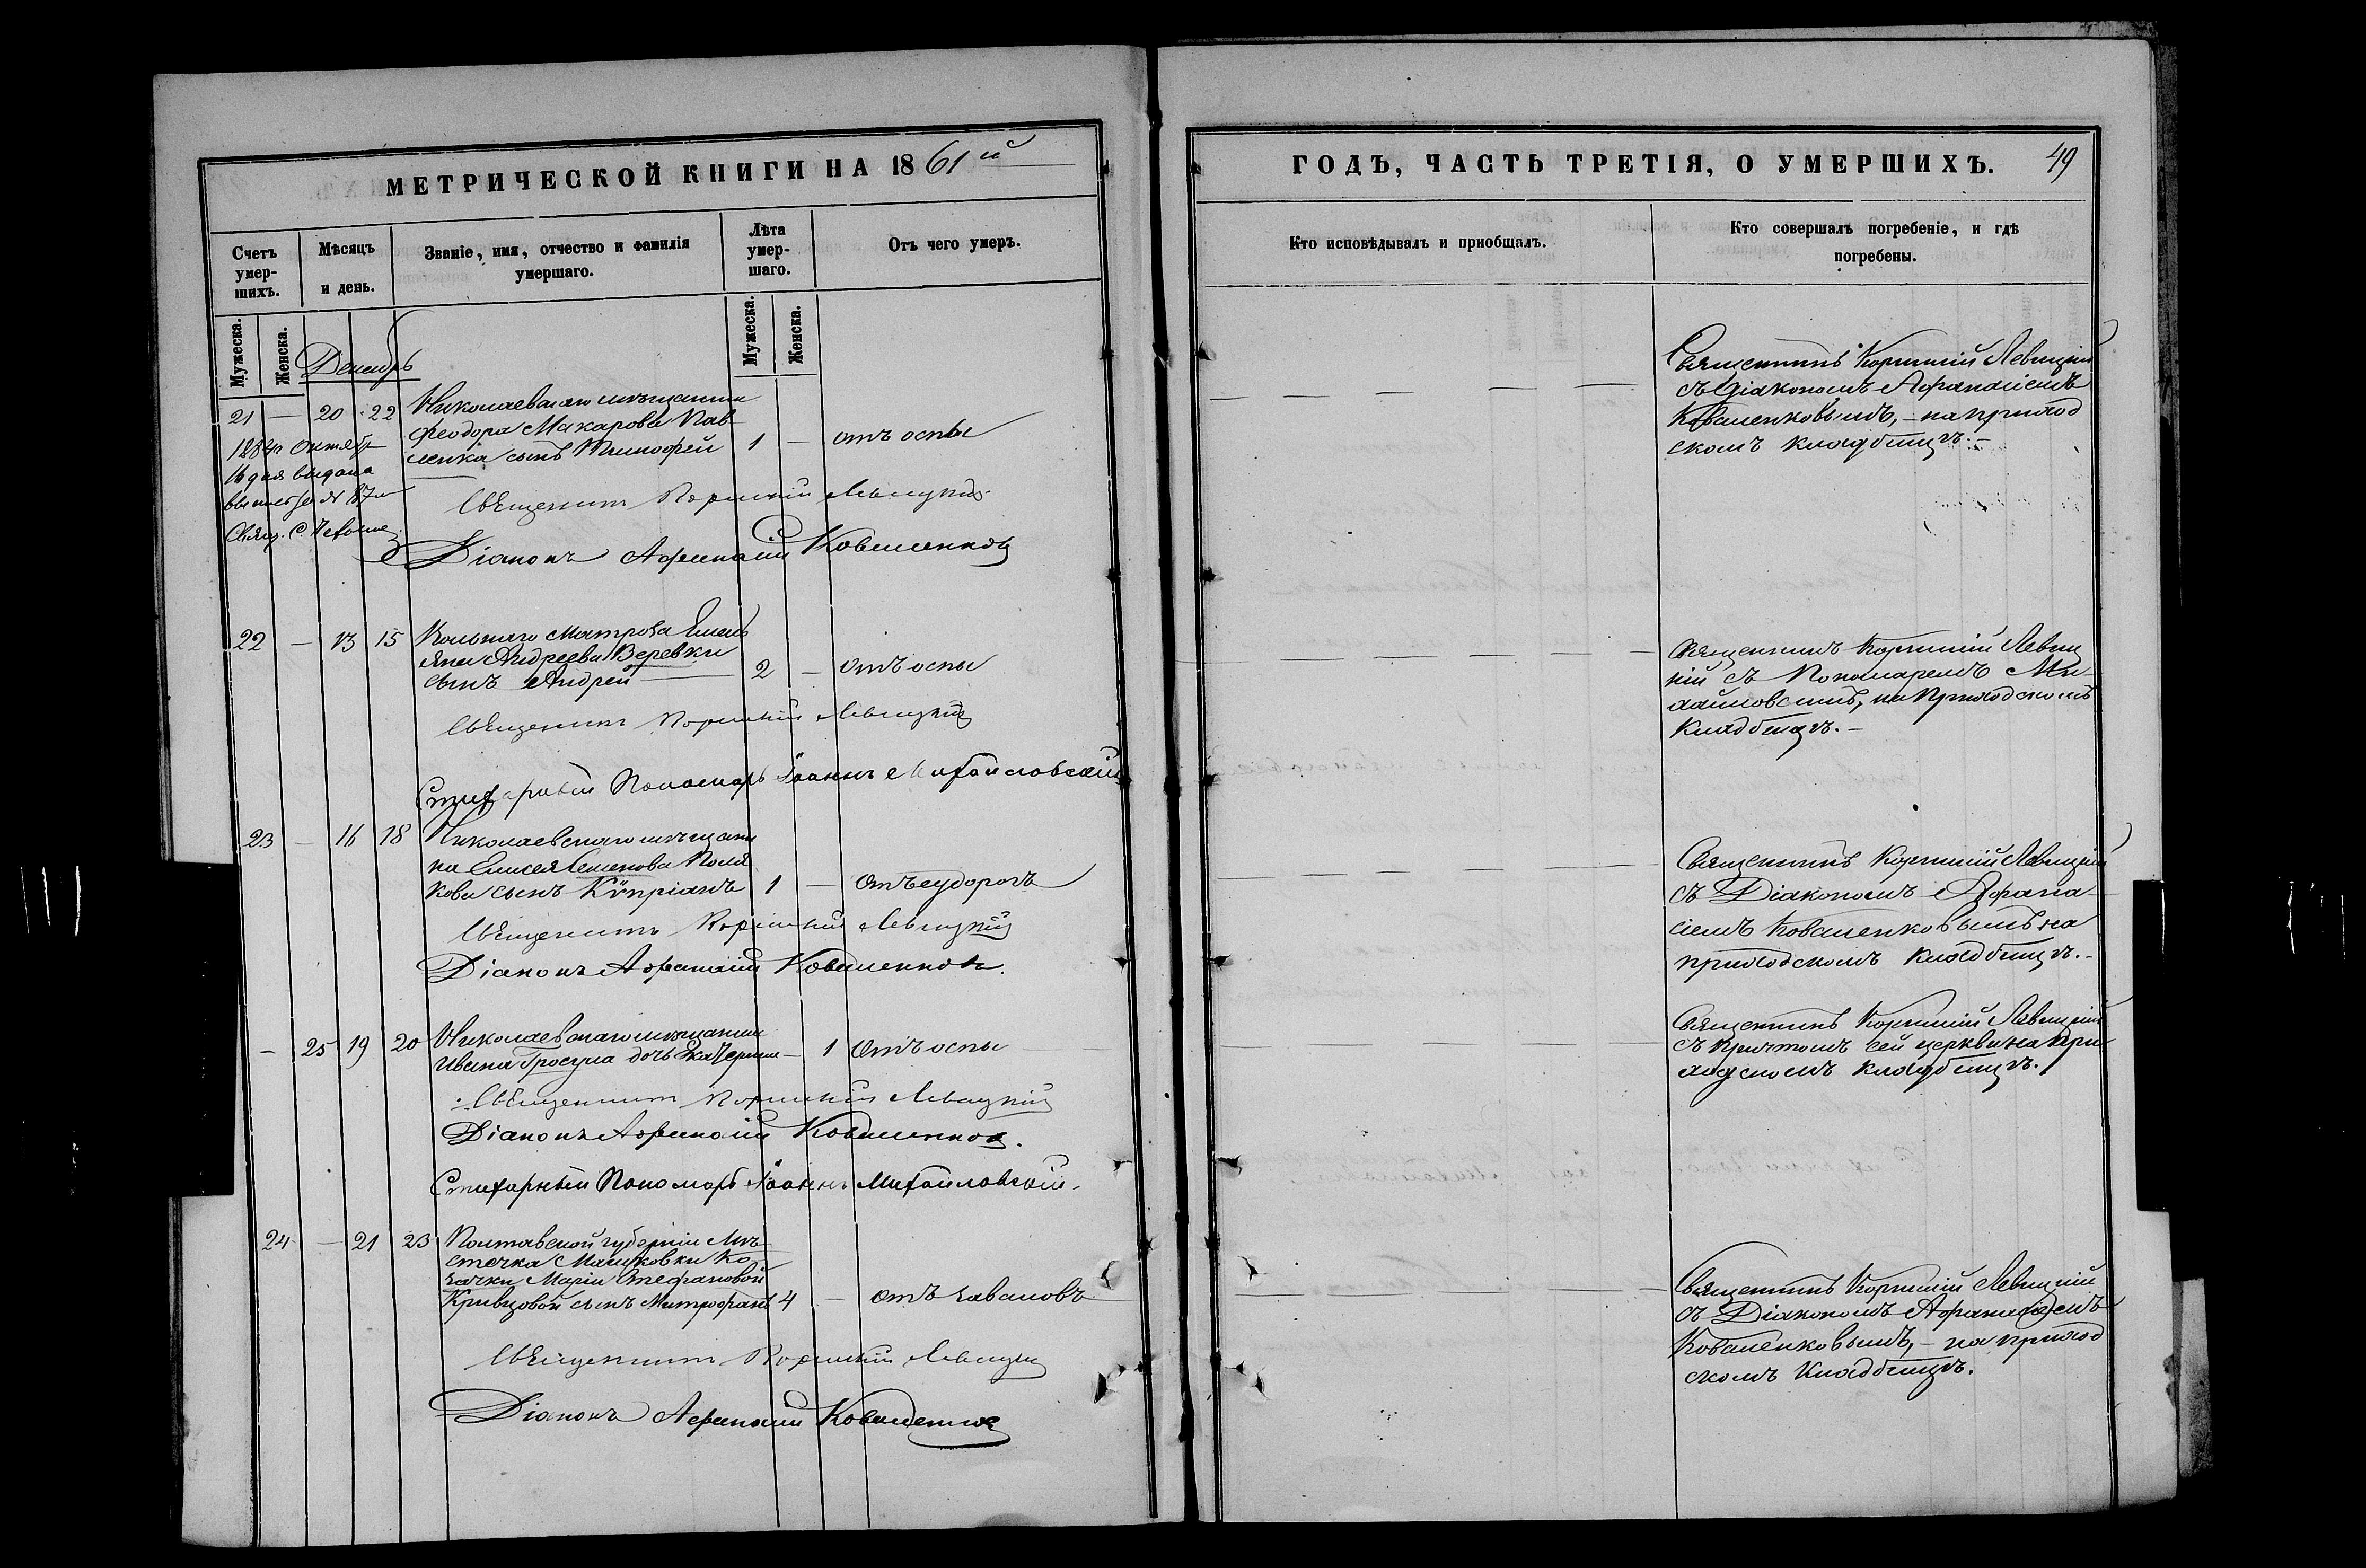 МЕТРИЧЕСКОЙ КНИГИ НА 1861й
Счетъ умер-шихъ.
Мѣсяцъ и день.
Званіе, имя, отчество и фамилія умершаго.
Лѣта умер-шаго.
Отъ чего умеръ.
Мужеска.
Женска.
Мужеска.
Женска.
Декабрь
21 — 20 22 Николаевскаго мѣщанина
Феодора Макарова Пав-
ленка сынъ Тимофей 1 — отъ оспы
Октяб
16 дня выдана
Свящ. С.
Священникъ Корнилій Левицкій
Діаконъ Афанасій Коваленковъ
22 — 13 15 Вольнаго матроса Емель
яна Андреева Веревки
сынъ Андрей 2 — отъ оспы
Священникъ Корнилій Левицкій
Стихарный Пономарь Іоаннъ Михайловскій
23 — 16 18 Николаевскаго мѣщани
на Елисея Семенова Поля
кова сынъ Кѵпріанъ 1 — отъ судорогъ
Священникъ Корнилій Левицкій
Діаконъ Афанасій Коваленковъ.
— 25 19 20 Николаевскаго мѣщанина
Ивана Гросула дочь Екатерина — 1 отъ оспы
Священникъ Корнилій Левицкій
Діаконъ Афанасій Коваленковъ.
Стихарный Пономарь Іоаннъ Михайловскій.
24 — 21 23 Полтавской губерніи Мѣ
стечка Машковки Ко-
зачки Маріи Стефановой
Кривцовой сынъ Митрофанъ 4 — отъ заваловъ
Священникъ Корнилій Левицкій
Діаконъ Афанасій Коваленковъ
ГОДЪ, ЧАСТЬ ТРЕТІЯ, О УМЕРШИХЪ. 49
Кто исповѣдывалъ и приобщалъ.
Кто совершалъ погребеніе, и гдѣ
погребены.
Священникъ Корнилій Левицкій
съ Діакономъ Афанасіемъ
Коваленковымъ, – на приход
скомъ кладбищѣ. –
Священникъ Корнилій Левиц
кій съ Пономаремъ Ми-
хайловскимъ, на приходскомъ
кладбищѣ. –
Священникъ Корнилій Левицкій
съ Діакономъ Афана-
сіемъ Коваленковымъ на
приходскомъ кладбищѣ. –
Священникъ Корнилій Левицкій
съ причтомъ сей церкви на при
ходскомъ кладбищѣ.
Священникъ Корнилій Левицкій
съ Діакономъ Афанасіемъ
Коваленковымъ, – на приход
скомъ кладбищѣ.